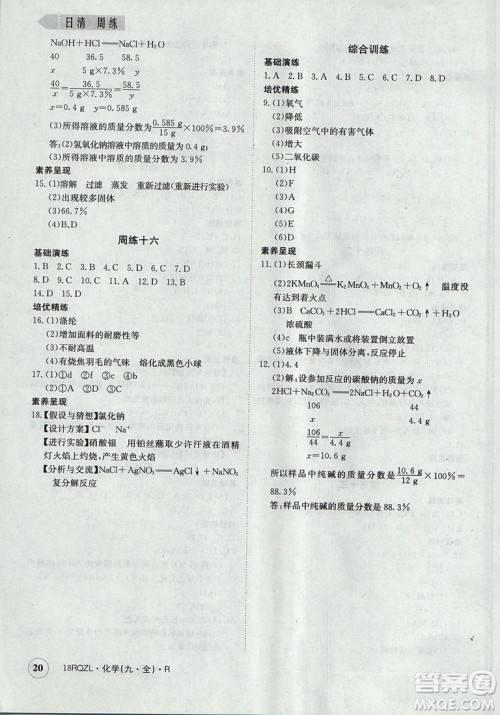 日清 周练
NaOH+HCl══NaCl+H₂O
40 36.5 58.5
40/x = 36.5/(5 g×7.3%) = 58.5/y
x=0.4 g
(3)所得溶液的质量分数为 0.585 g/15 g ×100%=3.9%
答:(2)氢氧化钠溶液中溶质的质量为 0.4 g;
(3)所得溶液的质量分数为 3.9%
素养呈现
15.(1)溶解 过滤 蒸发 重新过滤(重新进行实验)
(2)出现较多固体
(3)66.7%
(4)B、D
周练十六
基础演练
1.B 2.C 3.B 4.D 5.C 6.D 7.D 8.C
培优精练
16.(1)涤纶
(2)增加面料的耐磨性等
(3)不耐高温
(4)有烧焦羽毛的气味 熔化成黑色小球
17.(1)①d ②f (2)①c ②a
素养呈现
18.【假设与猜想】氯化钠
【设计方案】Cl⁻ Na⁺
【进行实验】硝酸银 用铂丝蘸取少许汗液在酒精
灯火焰上灼烧,产生黄色火焰
【分析与交流】NaCl+AgNO₃══AgCl↓+NaNO₃
复分解反应
综合训练
基础演练
1.A 2.C 3.D 4.C 5.A 6.D 7.C 8.D
培优精练
9.(1)氧气
(2)降低
(3)吸附空气中的有害气体
(4)增大
(5)二氧化碳
10.(1)H
(2)A
(3)E
(4)B
(5)F
(6)D
(7)G
素养呈现
11.(1)长颈漏斗
(2)2KMnO₄══(△)K₂MnO₄+MnO₂+O₂↑ 温度没
有达到着火点
(3)B CaCO₃+2HCl══CaCl₂+H₂O+CO₂↑
浓硫酸
(4)瓶中装满水或将装置倒立放置
(5)使液体与固体分离,反应停止
12.(1)4.4
(2)解:设参加反应的碳酸钠的质量为 x
Na₂CO₃+2HCl══2NaCl+H₂O+CO₂↑
106 44
x 4.4 g
106/44 = x/4.4 g
x=10.6 g
所以样品中纯碱的质量分数为 10.6 g/12 g ×100%=
88.3%
答:样品中纯碱的质量分数是 88.3%
20 18RQZL·化学(九·全)·R